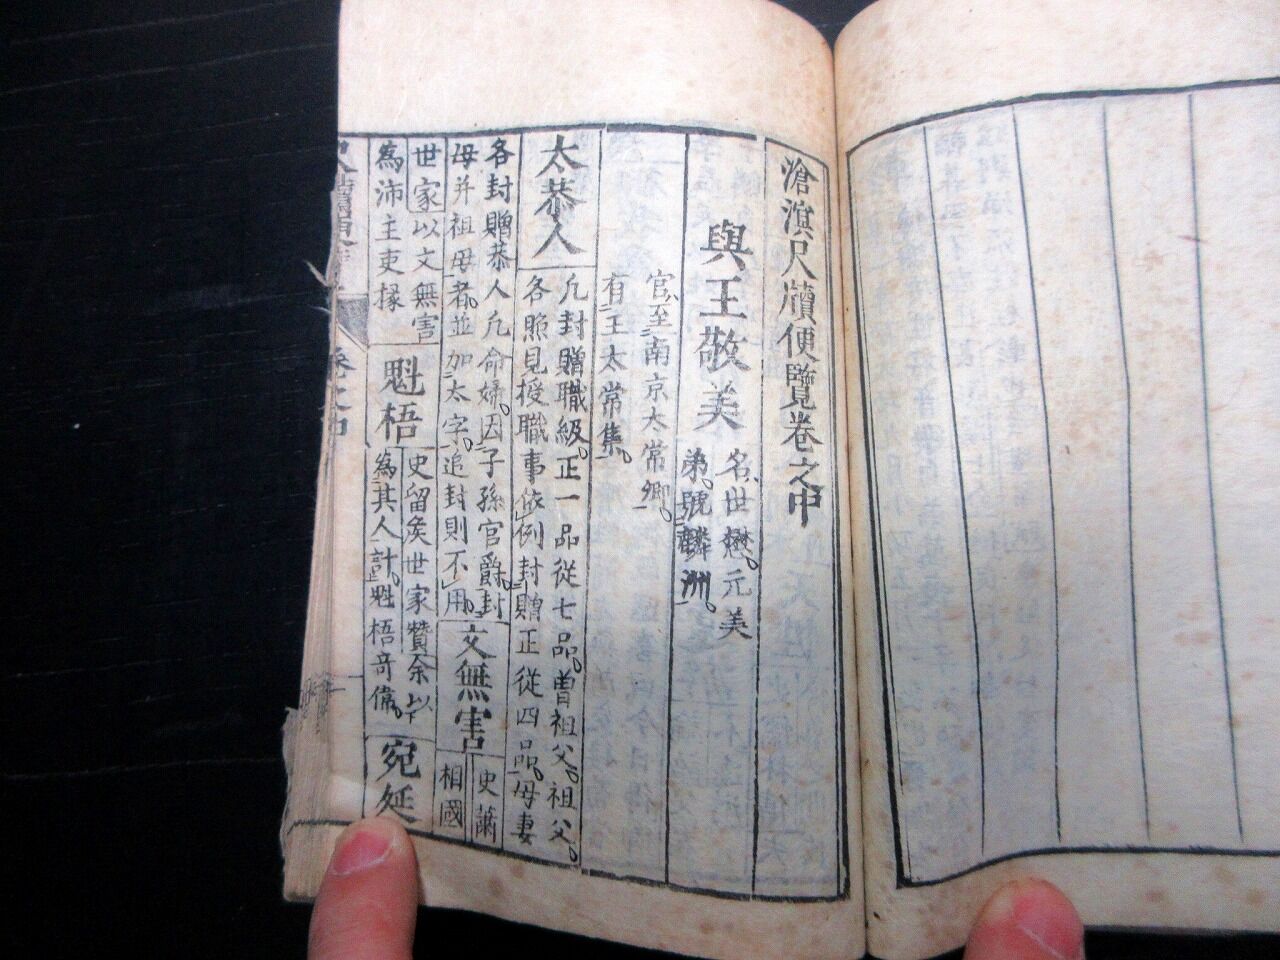 滄溟尺牘便覽卷之中
與王敬美
名世懋元美
弟號麟洲
官至南京太常卿
有王太常集
太恭人
凢封贈職級正一品從七品曽祖父祖父
各照見授職事依例封贈正從四品母妻
各封贈恭人凢命婦因子孫官爵封
母并祖母者並加太字追封則不用
文無害
史蕭
相國
世家以文無害
為沛主吏掾
魁梧
史留矦世家贊余以
為其人計魁梧竒偉
宛延
卷之中